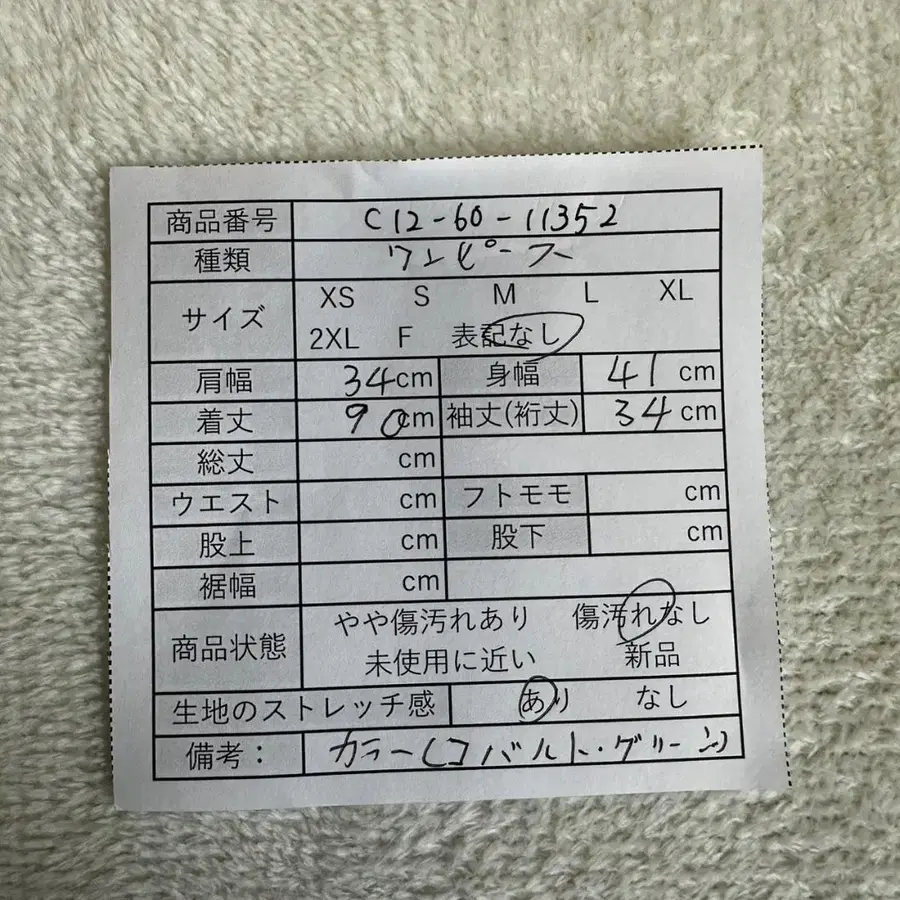 商品番号 C12-60-11352
種類 ワンピース
サイズ XS S M L XL
2XL F 表記なし
肩幅 34cm 身幅 41 cm
着丈 90cm 袖丈(裄丈) 34 cm
総丈 cm
ウエスト cm フトモモ cm
股上 cm 股下 cm
裾幅 cm
商品状態 やや傷汚れあり 傷汚れなし
未使用に近い 新品
生地のストレッチ感 あり なし
備考: カラー(コバルト・グリーン)